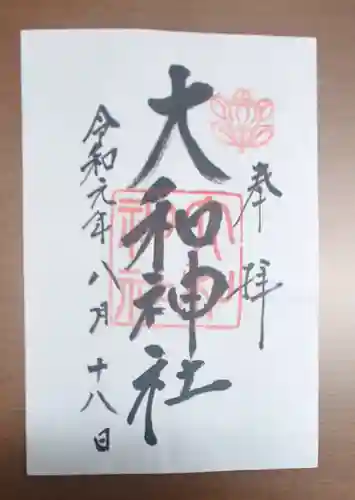 奉拝
大和神社
令和元年八月十八日